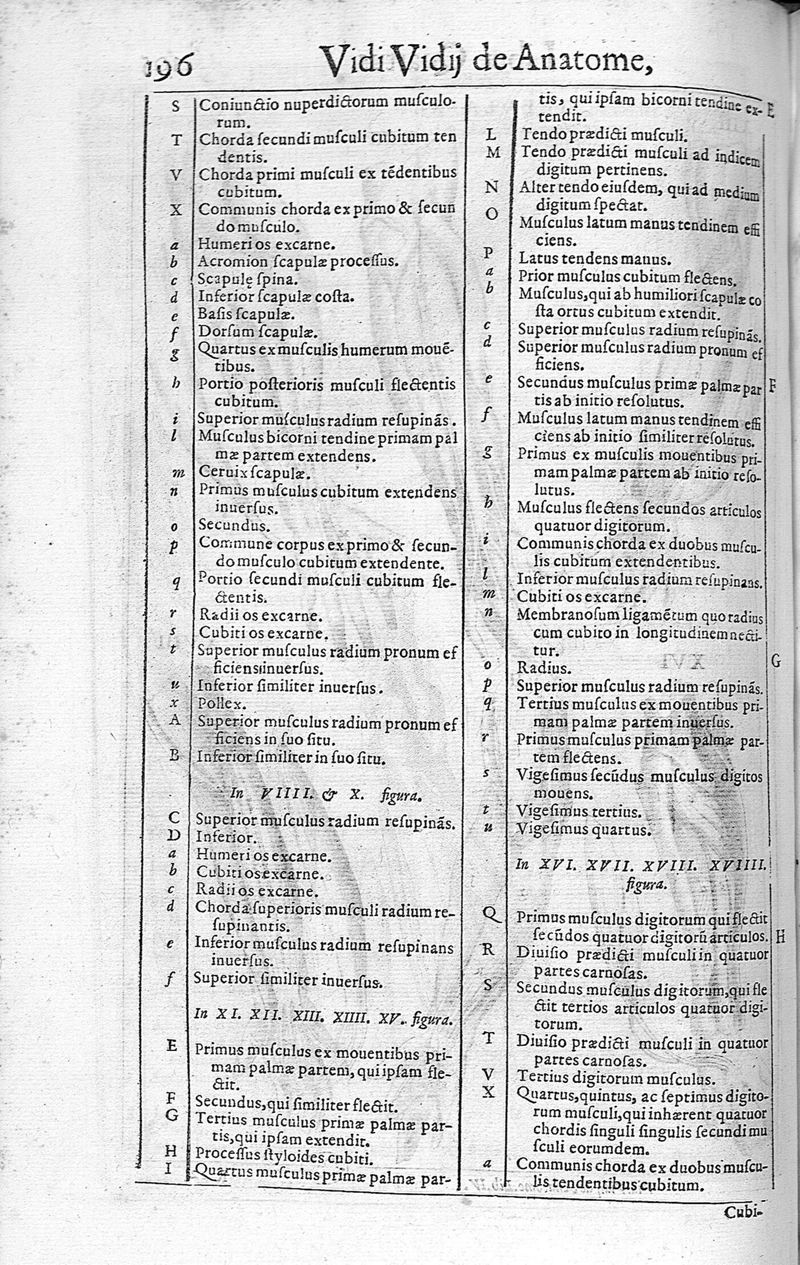 196 Vidi Vidij de Anatome,
S Coniunctio nuperdictorum muſculo-
rum.
T Chorda ſecundi muſculi cubitum ten
dentis.
V Chorda primi muſculi ex tēdentibus
cubitum.
X Communis chorda ex primo & ſecun
do muſculo.
a Humeri os excarne.
b Acromion ſcapulæ proceſſus.
c Scapulę ſpina.
d Inferior ſcapulæ coſta.
e Baſis ſcapulæ.
f Dorſum ſcapulæ.
g Quartus ex muſculis humerum mouē-
tibus.
h Portio poſterioris muſculi flectentis
cubitum.
i Superior muſculus radium reſupinās.
l Muſculus bicorni tendine primam pal
mæ partem extendens.
m Ceruix ſcapulæ.
n Primus muſculus cubitum extendens
inuerſus.
o Secundus.
p Commune corpus ex primo & ſecun-
do muſculo cubitum extendente.
q Portio ſecundi muſculi cubitum fle-
ctentis.
r Radii os excarne.
s Cubiti os excarne.
t Superior muſculus radium pronum ef
ficiens inuerſus.
u Inferior ſimiliter inuerſus.
x Pollex.
A Superior muſculus radium pronum ef
ficiens in ſuo ſitu.
B Inferior ſimiliter in ſuo ſitu.
In VIIII. & X. figura.
C Superior muſculus radium reſupinās.
D Inferior.
a Humeri os excarne.
b Cubiti os excarne.
c Radii os excarne.
d Chorda ſuperioris muſculi radium re-
ſupinantis.
e Inferior muſculus radium reſupinans
inuerſus.
f Superior ſimiliter inuerſus.
In XI. XII. XIII. XIIII. XV. figura.
E Primus muſculus ex mouentibus pri-
mam palmæ partem, qui ipſam fle-
ctit.
F Secundus, qui ſimiliter flectit.
G Tertius muſculus primæ palmæ par-
tis, qui ipſam extendit.
H Proceſſus ſtyloides cubiti.
I Quartus muſculus primæ palmæ par-
tis, qui ipſam bicorni tendine ex- E
tendit.
L Tendo prædicti muſculi.
M Tendo prædicti muſculi ad indicem
digitum pertinens.
N Alter tendo eiuſdem, qui ad medium
digitum ſpectat.
O Muſculus latum manus tendinem effi
ciens.
P Latus tendens manus.
a Prior muſculus cubitum flectens.
b Muſculus, qui ab humiliori ſcapulæ co
ſta ortus cubitum extendit.
c Superior muſculus radium reſupinās.
d Superior muſculus radium pronum ef
ficiens.
e Secundus muſculus primæ palmæ par F
tis ab initio reſolutus.
f Muſculus latum manus tendinem effi
ciens ab initio ſimiliter reſolutus.
g Primus ex muſculis mouentibus pri-
mam palmæ partem ab initio reſo-
lutus.
h Muſculus flectens ſecundos articulos
quatuor digitorum.
i Communis chorda ex duobus muſcu-
lis cubitum extendentibus.
l Inferior muſculus radium reſupinans.
m Cubiti os excarne.
n Membranoſum ligamētum quo radius
cum cubito in longitudinem necti-
tur. G
o Radius.
p Superior muſculus radium reſupinās.
q Tertius muſculus ex mouentibus pri-
mam palmæ partem inuerſus.
r Primus muſculus primam palmæ par-
tem flectens.
s Vigeſimus ſecūdus muſculus digitos
mouens.
t Vigeſimus tertius.
u Vigeſimus quartus.
In XVI. XVII. XVIII. XVIIII.
figura.
Q Primus muſculus digitorum qui flectit
ſecūdos quatuor digitorū articulos. H
R Diuiſio prædicti muſculi in quatuor
partes carnoſas.
S Secundus muſculus digitorum, qui fle
ctit tertios articulos quatuor digi-
torum.
T Diuiſio prædicti muſculi in quatuor
partes carnoſas.
V Tertius digitorum muſculus.
X Quartus, quintus, ac ſeptimus digito-
rum muſculi, qui inhærent quatuor
chordis ſinguli ſingulis ſecundi mu
ſculi eorumdem.
a Communis chorda ex duobus muſcu-
lis tendentibus cubitum.
Cubi-